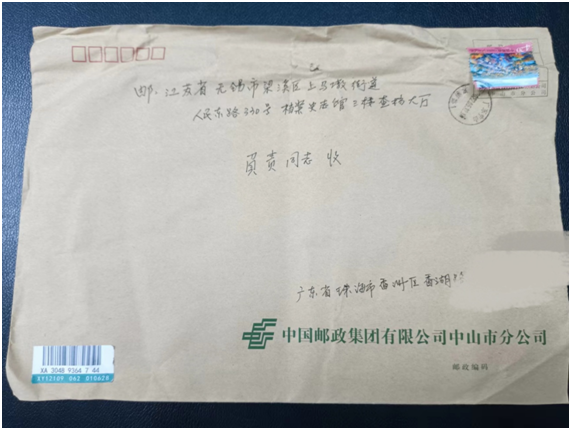 邮: 江苏省无锡市梁溪区上马墩街道
人民东路330号 档案史志馆 三楼查档大厅
负责同志 收
广东省珠海市香洲区香湖
中国邮政集团有限公司中山市分公司
邮政编码
XA 3048 9364 7 44